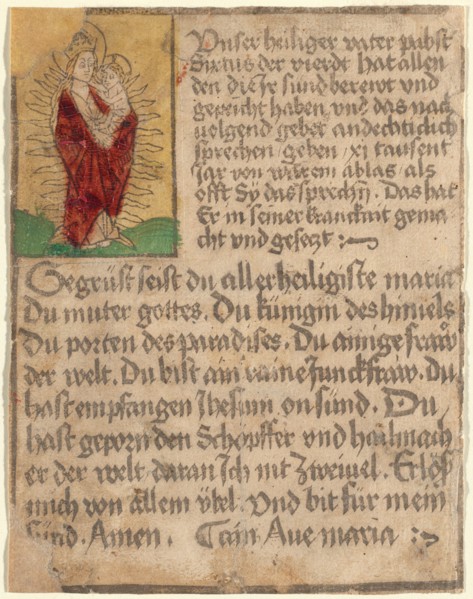 Unser heiliger vater pabst
Sixtus der vierdt hat allen
den die Ir sund berewt vnd
gepeicht haben, vnd das nach
uolgend gebet andechticlich
sprechen / geben / xj tausent
Jar von warem ablas / als
offt Sy das sprechñ. Das hat
Er in seiner kranckait gema
cht vnd gesetzt :~
Gegrüst seist du allerheiligiste maria
Du muter gottes. Du künigin des himels
Du porten des paradises. Du ainige fraw
der welt. Du bist ain raine Junckfraw. Du
hast empfangen Jhesum on sünd. Du
hast geporn den Schopffer vnd hailmach
er der welt daran Ich nit Zweiuel. Erlös
mich von allem übel. Vnd bit für mein
Sünd. Amen. Ain Aue maria :~